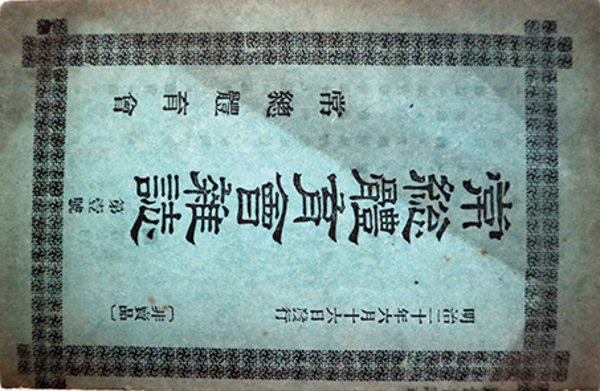 明治三十年六月十六日發行
〔非賣品〕
常總體育會雜誌
第壹號
常總體育會